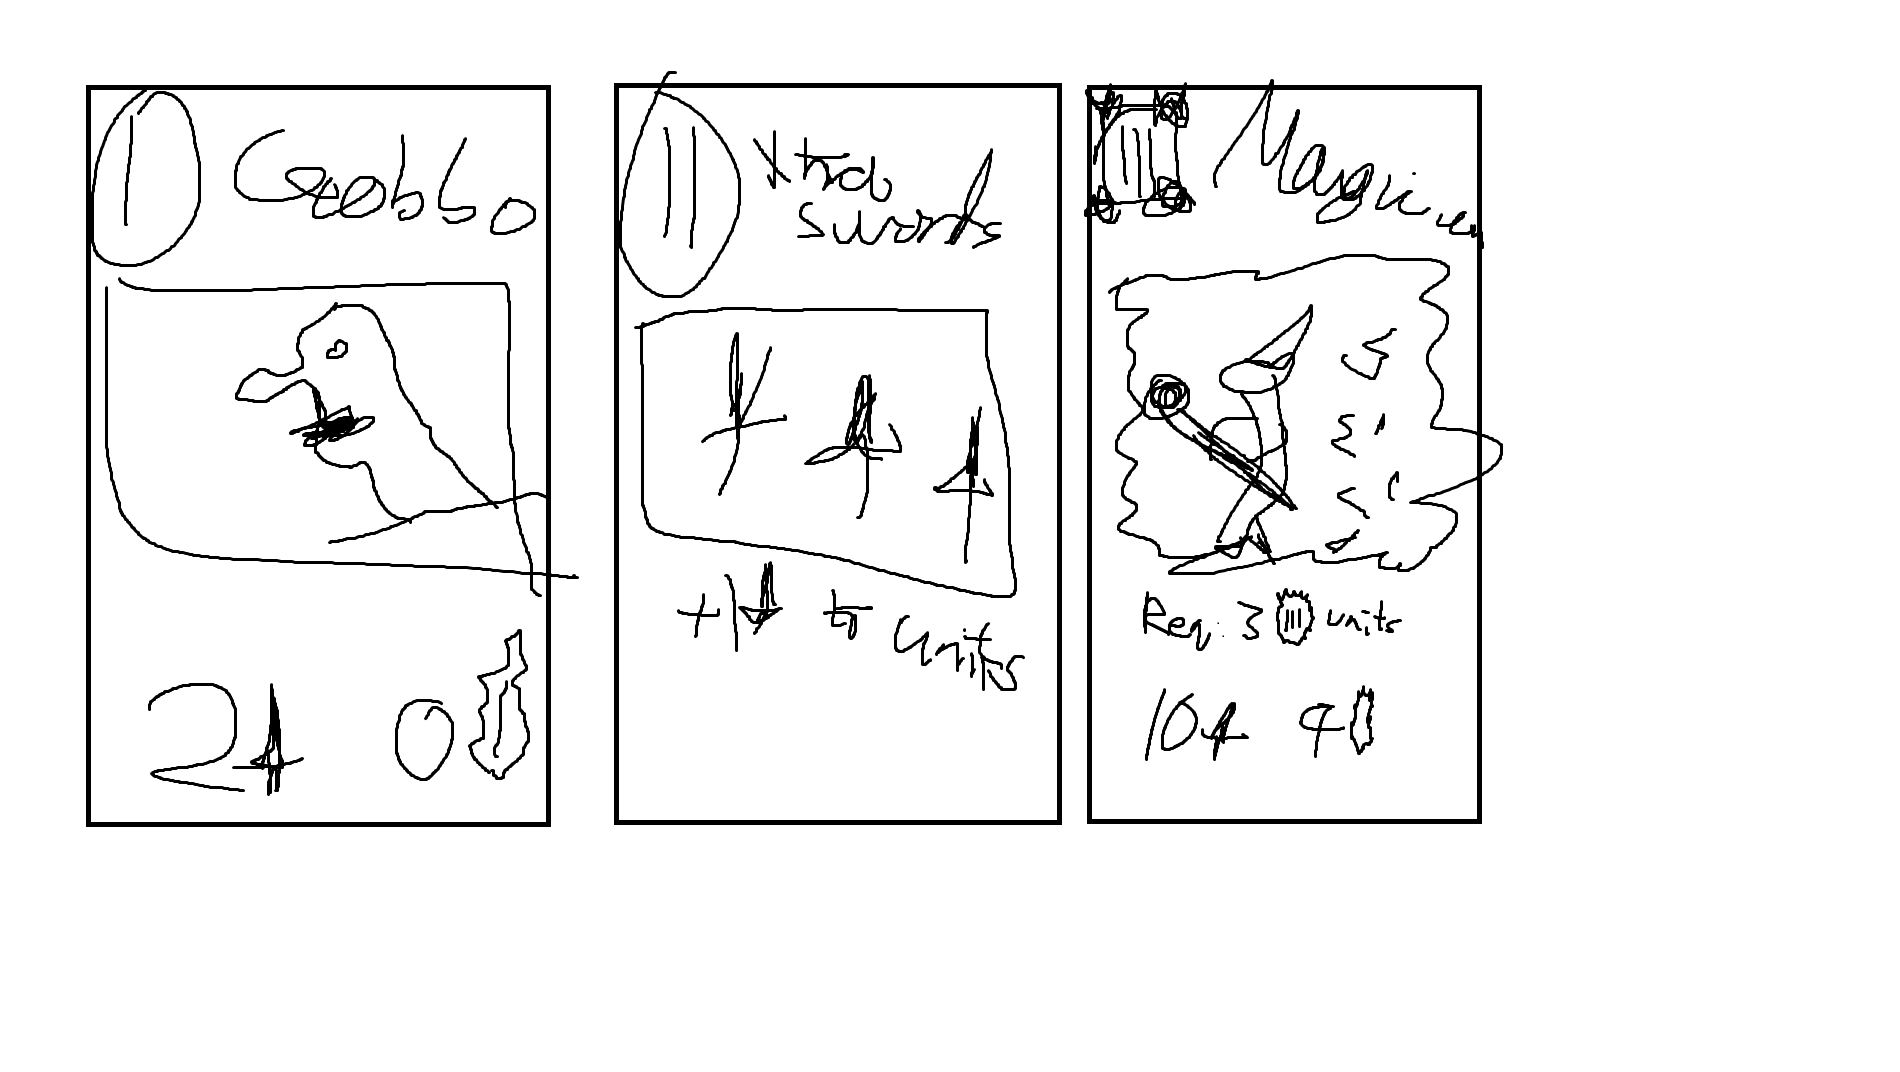 I
Gobbo
2
0
II
Xtra
swords
+1 to units
III
Magician
Req: 3 III units
10 4